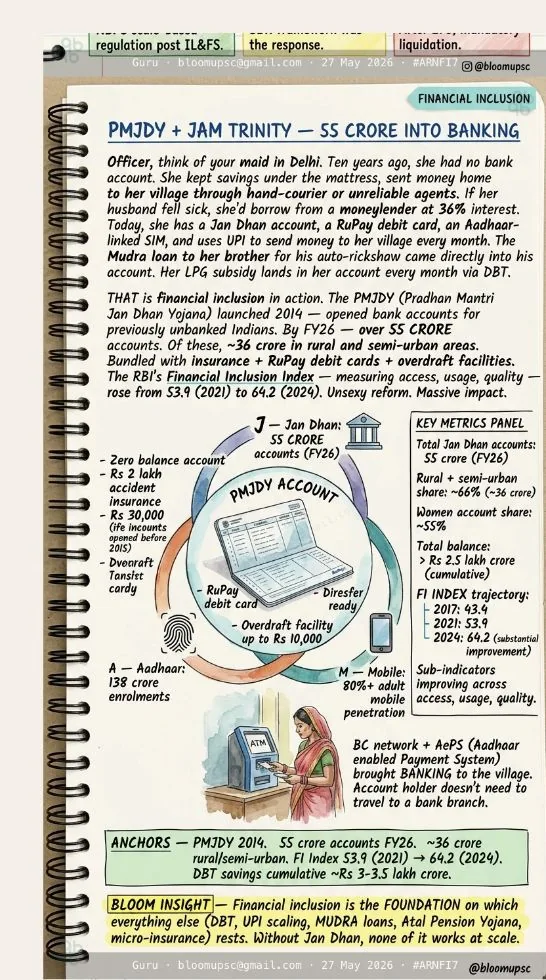 regulation post IL&FS.
the response.
liquidation.
Guru · bloomupsc@gmail.com · 27 May 2026 · #ARNFI7
@bloomupsc
FINANCIAL INCLUSION
PMJDY + JAM TRINITY — 55 CRORE INTO BANKING
Officer, think of your maid in Delhi. Ten years ago, she had no bank
account. She kept savings under the mattress, sent money home
to her village through hand-courier or unreliable agents. If her
husband fell sick, she'd borrow from a moneylender at 36% interest.
Today, she has a Jan Dhan account, a RuPay debit card, an Aadhaar-
linked SIM, and uses UPI to send money to her village every month. The
Mudra loan to her brother for his auto-rickshaw came directly into his
account. Her LPG subsidy lands in her account every month via DBT.
THAT is financial inclusion in action. The PMJDY (Pradhan Mantri
Jan Dhan Yojana) launched 2014 — opened bank accounts for
previously unbanked Indians. By FY26 — over 55 CRORE
accounts. Of these, ~36 crore in rural and semi-urban areas.
Bundled with insurance + RuPay debit cards + overdraft facilities.
The RBI's Financial Inclusion Index — measuring access, usage, quality —
rose from 53.9 (2021) to 64.2 (2024). Unsexy reform. Massive impact.
J — Jan Dhan:
55 CRORE
accounts (FY26)
- Zero balance account
- Rs 2 lakh
accident
insurance
- Rs 30,000
(ife incounts
opened before
2015)
- Dveraft
Tanslet
cardy
PMJDY ACCOUNT
- RuPay
debit card
- Diresfer
ready
- Overdraft facility
up to Rs 10,000
A — Aadhaar:
138 crore
enrolments
M — Mobile:
80%+ adult
mobile
penetration
KEY METRICS PANEL
Total Jan Dhan accounts:
55 crore (FY26)
Rural + semi-urban
share: ~66% (~36 crore)
Women account share:
~55%
Total balance:
> Rs 2.5 lakh crore
(cumulative)
FI INDEX trajectory:
2017: 43.4
2021: 53.9
2024: 64.2 (substantial
improvement)
Sub-indicators
improving across
access, usage, quality.
ATM
BC network + AePS (Aadhaar
enabled Payment System)
brought BANKING to the village.
Account holder doesn't need to
travel to a bank branch.
ANCHORS — PMJDY 2014. 55 crore accounts FY26. ~36 crore
rural/semi-urban. FI Index 53.9 (2021) → 64.2 (2024).
DBT savings cumulative ~Rs 3-3.5 lakh crore.
BLOOM INSIGHT — Financial inclusion is the FOUNDATION on which
everything else (DBT, UPI scaling, MUDRA loans, Atal Pension Yojana,
micro-insurance) rests. Without Jan Dhan, none of it works at scale.
Guru · bloomupsc@gmail.com · 27 May 2026 · #ARNFI7
@bloomupsc